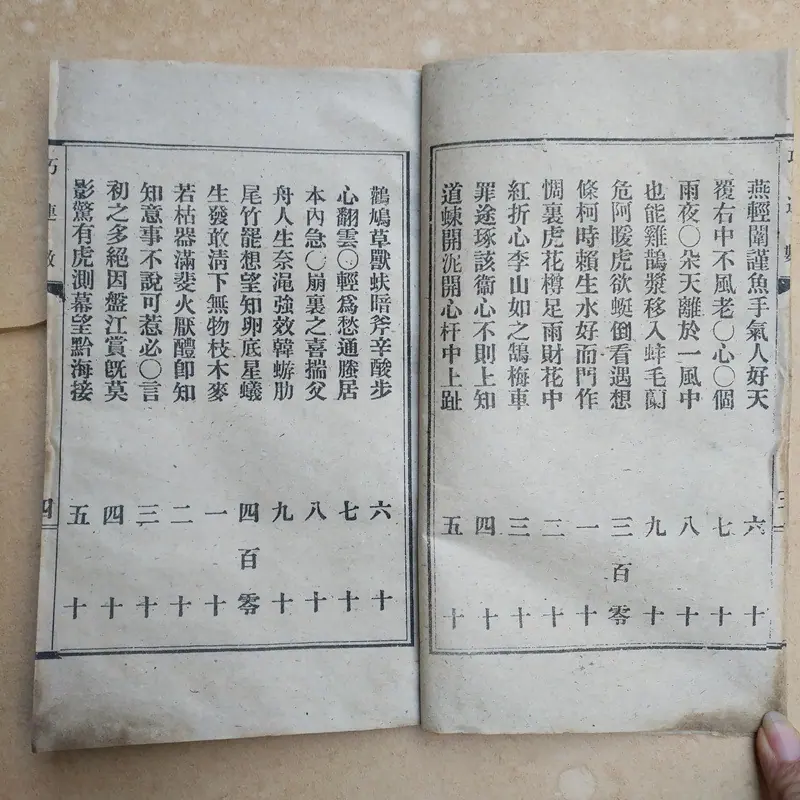 燕輕闈謹魚手氣人好天
六十
覆右中不風老〇心〇個
七十
雨夜〇朵天離於一風中
八十
也能雞鵲漿移入蚌毛蘭
九十
危阿暖虎欲蜓倒看遇想
三百零
條柯時賴生水好而門作
一十
惆裏虎花樽足雨財花中
二十
紅折心李山如之鵠梅車
三十
罪途琢該衞心不則上知
四十
道蝀開泥開心杆中上趾
五十
鶴鳩草獸蚨暗斧辛酸步
六十
心翻雲〇輕爲愁通縢居
七十
本內急〇崩裏之喜揣父
八十
舟人生奈澠強效韓蝣肋
九十
尾竹罷想望知卵底星蟻
四百零
生發敢淸下無物枝木麥
一十
若枯器滿斐火厭醴卽知
二十
知意事不說可惹必〇言
三十
初之多絕因盤江賞旣莫
四十
影驚有虎測幕望黔海接
五十
巧連數
四